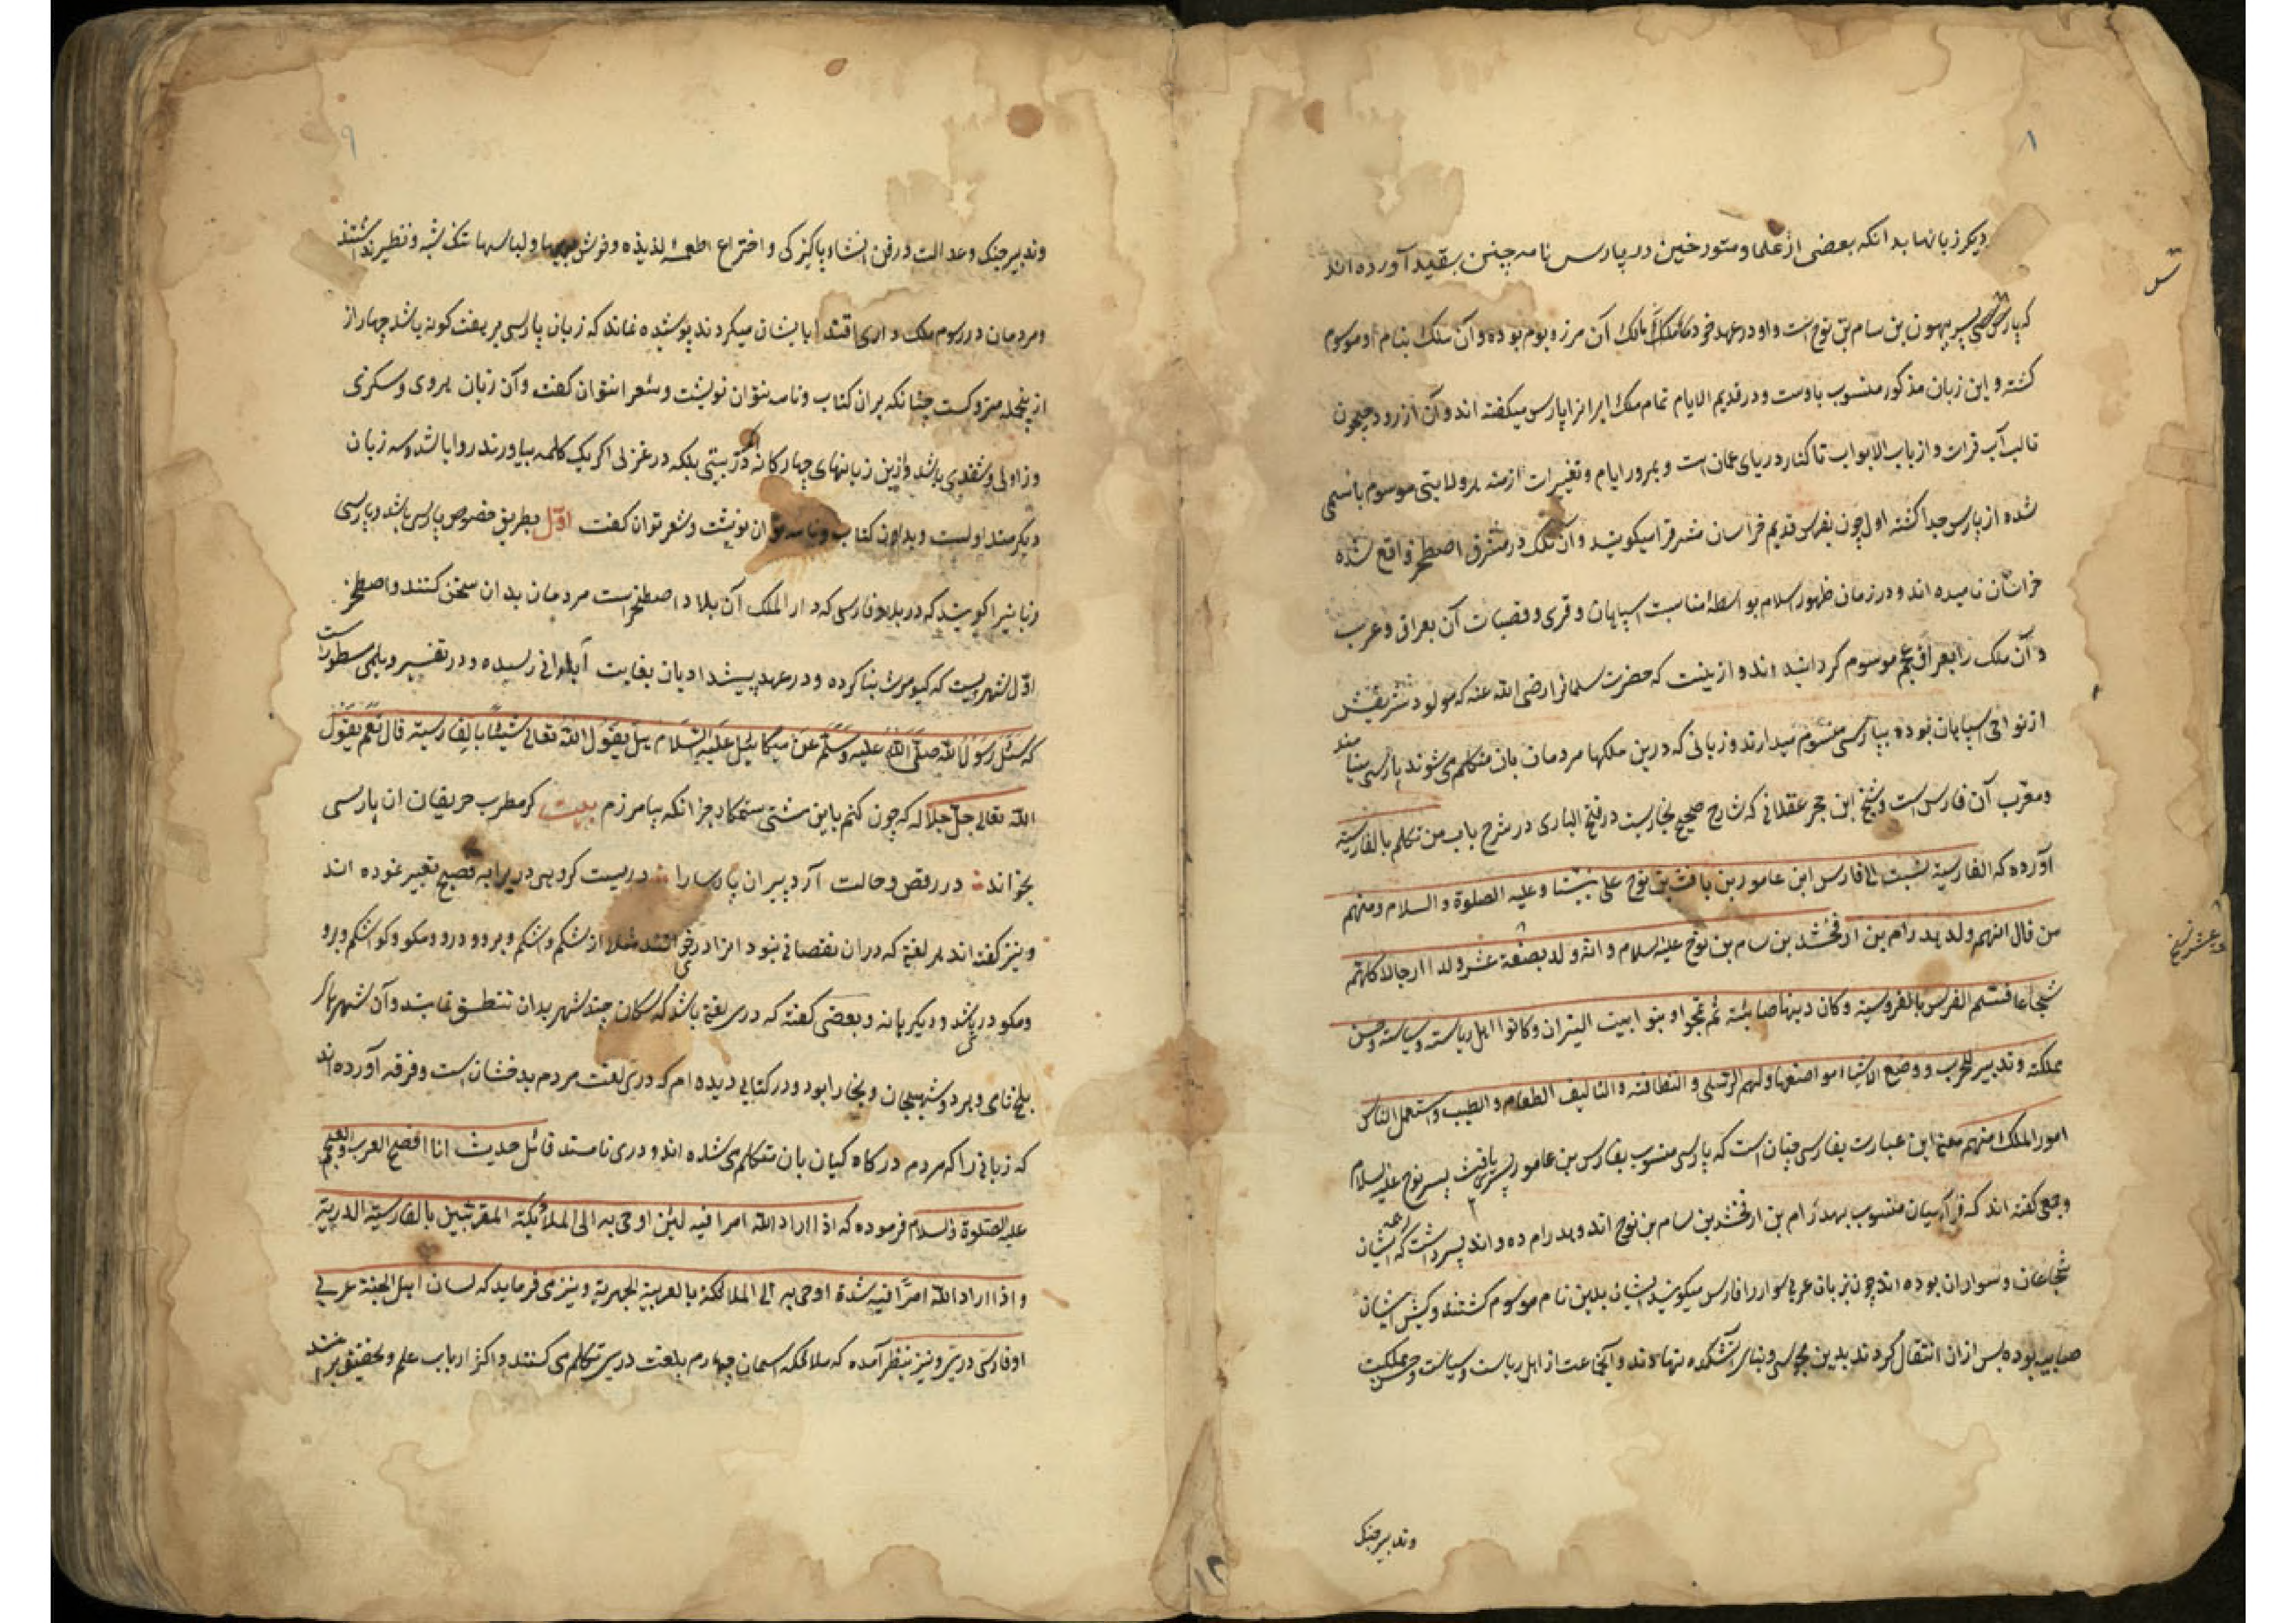 ۸
دیکر زبانها بدانکه بعضی از علما و متورخین در پارس نامه چنین بقید آورده اند
که پارس پسر پهون بن سام بن نوح است و او در عهد خود مالک آن مرز و بوم بوده و آن ملک بنام او موسوم
کشته و این زبان مذکور منسوب باوست و در قدیم الایام تمام ملک ایرانرا پارس میکفته اند و آن از رود جیحون
تا لب آب فرات و از باب الابواب تا کنار دریای عمان است و بمرور ایام و تغییرات ازمنه هر ولایتی موسوم باسمی
شده از پارس جدا کشته اول چون بفرس قدیم خراسان مشرقرا میکویند و آن ملک در مشرق اصطخر واقع شده
خراسان نامیده اند و در زمان ظهور اسلام بواسطهٔ مناسبت اسپاهان و قری و قصبات آن بعراق عرب
آن ملک را بعراق عجم موسوم کردانیده اند و ازینست که حضرت سلمانرا رضی الله عنه که مولود شریفش
از نواحی اسپاهان بوده بپارسی منسوب میدارند و زبانی که درین ملکها مردمان بان متکلم می شوند پارسی مینامند
و معرب آن فارس است و شیخ ابن حجر عقلانی که شارح صحیح بخاریست در فتح الباری در شرح باب من تکلم بالفارسیة
آورده که الفارسیة نسبت الی فارس ابن عامور بن یافث بن نوح علی نبینا و علیه الصلوة و السلام و منهم
من قال انهم ولد هدرام بن ارفخشد بن سام بن نوح علیه السلام و انه ولد بضعة عشر ولدا رجالا کلهم
شجاعا فسمم الفرس بالفروسیة و کان دینها صابئة ثم تمجوا و بنوا ابیت النیران و کانوا اهل ریاسته و سیاسته و حسن
مملکته و تدبیر للحرب و وضع الاشیاء مواضعها و لهم الترسلی و النظافته و التالیف الطعام و الطیب و استعمل الناس
امور الملک منهم معنی این عبارت بفارسی چنان است که پارسی منسوب بفارس بن عامور پسر یافث پسر نوح علیه السلام
و جمعی کفته اند که فارسیان منسوب بهدرام بن ارفخشد بن سام بن نوح اند و هدرام ده و اند پسر داشت که ایشان
شجاعان و سواران بوده اند چون بزبان عربی سوار را فارس میکویند ایشان بدین نام موسوم کشتند و کیش ایشان
صابیه بوده پس ازان انتقال کردند بدین مجوسی و بنای آتشکده نهادند و آنجماعت از اهل ریاست و سیاست و حسن مملکت
و تدبیر جنک
۹
و تدبیر جنک و عدالت و در فن انشاء پاکیزکی و اختراع اطعمهٔ لذیذه و خوش بویها و لباسها تنک شبه و نظیر نداشتند
و مردمان در رسوم ملک داری اقتدا بایشان میکردند پوشیده نماند که زبان پارسی بر هفت کونه باشد چهار از
ازینجمله متروکست چنانکه بران کتاب و نامه نتوان نوشت و شعر نتوان کفت و آن زبان هروی و سکزی
و زاولی و سغدی باشد و ازین زبانهای چهارکانه در بیتی بلکه در غزلی اکر یک کلمه بیاورند روا باشد و سه زبان
دیکر متداولست و بداون کتاب و نامه توان نوشت و شعر توان کفت اوّل بطریق خصوص پارسی باشد و پارسی
زبانیرا کویند که در بلاد فارسی که دار الملک آن بلاد اصطخر است مردمان بدان سخن کنند و اصطخر
اوّل شهریست که کیومرث بنا کرده و در عهد پیشدادیان بغایت آبادانی رسیده و در تفسیر دیلمی مسطورست
که سئل رسول الله صلی الله علیه وسلم عن میکائیل علیه السلام هل یقول الله تعالی شیئا بالفارسیة قال نعم یقول
الله تعالی جل جلاله که چون کنم باین مشتی ستمکار جز انکه بیامرزم بیت کر مطرب حریفان ان پارسی
بخواند : در رقص و حالت آرد پیران پارسا را : دریست کروهی دری را به فصیح تعبیر نموده اند
و نیز کفته اند هر لغتی که دران نقصانی نبود انرا دری خوانند مثلا اشکم و شکم و برو و درو و مکو و کو اشکم و برو
و مکو دری باشد و دیکریها نه و بعضی کفته که دری لغتی باشد که ساکنان چند شهر بدان تنطق نمایند و آن شهرها
بلخ نامی و مرو و شهیجان و بخارا بود و در کتابی دیده ام که دری لغت مردم بدخشان است و فرقه آورده اند
که زبانی را که مردم در کاه کیان بان متکلم می شده اند و دری نامستد قائل حدیث انا افصح العرب و العجم
علیه الصلوة و السلام فرموده که اذا اراد الله امرا فیه لین اوحی به الی الملائکة المقربین بالفارسیة الدریة
و اذا اراد الله امراً فیه شدة اوحی به الی الملائکة بالعربیة الجهریة و نیز می فرماید که لسان اهل الجنة عربی
او فارسی دریّ و نیز بنظر آمده که ملائکه آسمان چهارم بلغت دری تکلم می کنند و اکثر ارباب علم و تحقیق برانند